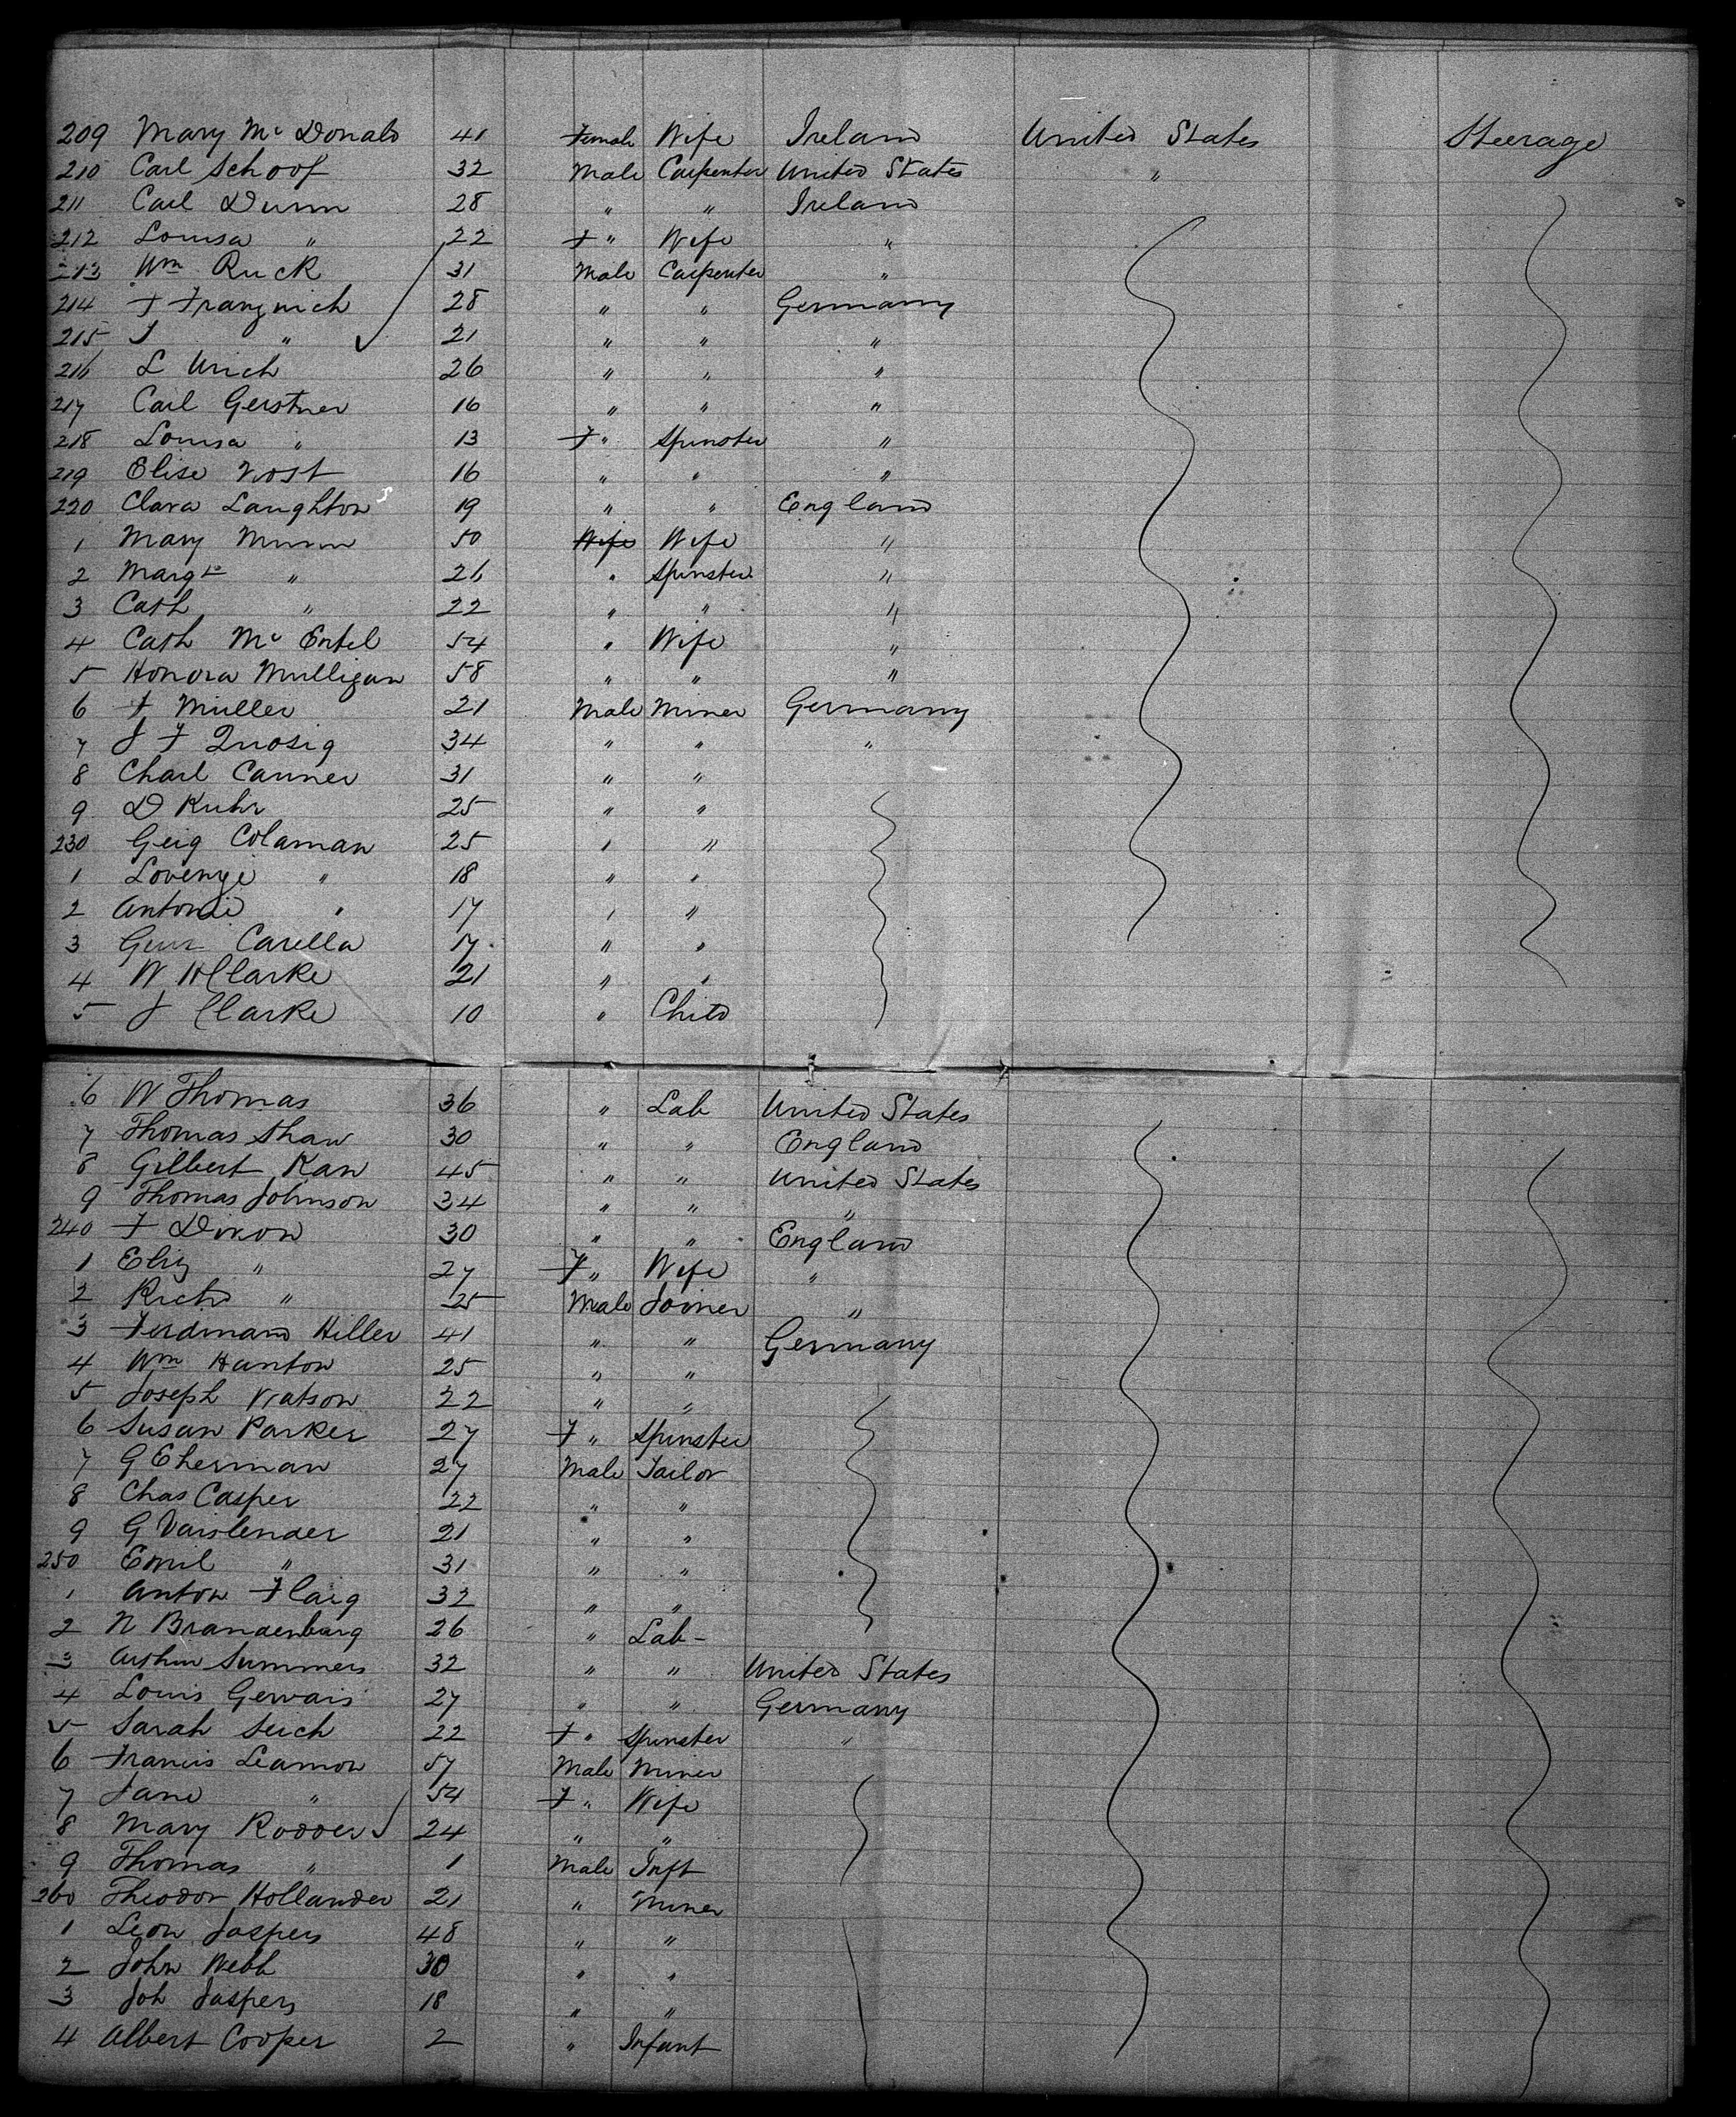 209 Mary Mc Donald 41 Female Wife Ireland United States Steerage
210 Carl Schoof 32 Male Carpenter United States "
211 Carl Dunn 28 " " Ireland
212 Louisa " 22 F " Wife "
213 Wm Ruck 31 Male Carpenter "
214 F Frangnich 28 " " Germany
215 J " 21 " " "
216 L Urich 26 " " "
217 Carl Gerstner 16 " " "
218 Louisa " 13 F " Spinster "
219 Elise Vost 16 " " "
220 Clara Laughton 19 " " England
1 Mary Munn 50 Wife Wife "
2 Margt " 26 " Spinster "
3 Cath " 22 " " "
4 Cath Mc Entel 54 " Wife "
5 Honora Mulligan 58 " " "
6 F Muller 21 Male Miner Germany
7 J F Quosig 34 " " "
8 Charl Canner 31 " "
9 D Kuhr 25 " "
230 Geig Colaman 25 " "
1 Lovenge " 18 " "
2 Antonie " 17 " "
3 Carella 17 " "
4 W H Clarke 21 " "
5 J Clarke 10 " Child
6 W Thomas 36 " Lab United States
7 Thomas Shaw 30 " " England
8 Gilbert Kaw 45 " " United States
9 Thomas Johnson 34 " " "
240 F Dixon 30 " " England
1 Eliz " 27 F " Wife "
2 Richd " 25 Male Joiner "
3 Ferdinand Hiller 41 " " Germany
4 Wm Hanton 25 " "
5 Joseph Watson 22 " "
6 Susan Parker 27 F " Spinster
7 G Eherman 27 Male Tailor
8 Chas Casper 22 " "
9 G Vaislender 21 " "
250 Emil " 31 " "
1 Anton Flaig 32 " "
2 N Brandenburg 26 " Lab-
3 Arthur Summers 32 " " United States
4 Louis Gervais 27 " " Germany
5 Sarah Seich 22 F " Spinster "
6 Francis Leamon 57 Male Miner
7 Jane " 54 F " Wife
8 Mary Rodder 24 " "
9 Thomas " 1 Male Inft
260 Theodor Hollander 21 " Miner
1 Leon Jaspers 48 " "
2 John Webb 30 " "
3 Joh Jaspers 18 " "
4 Albert Cooper 2 " Infant